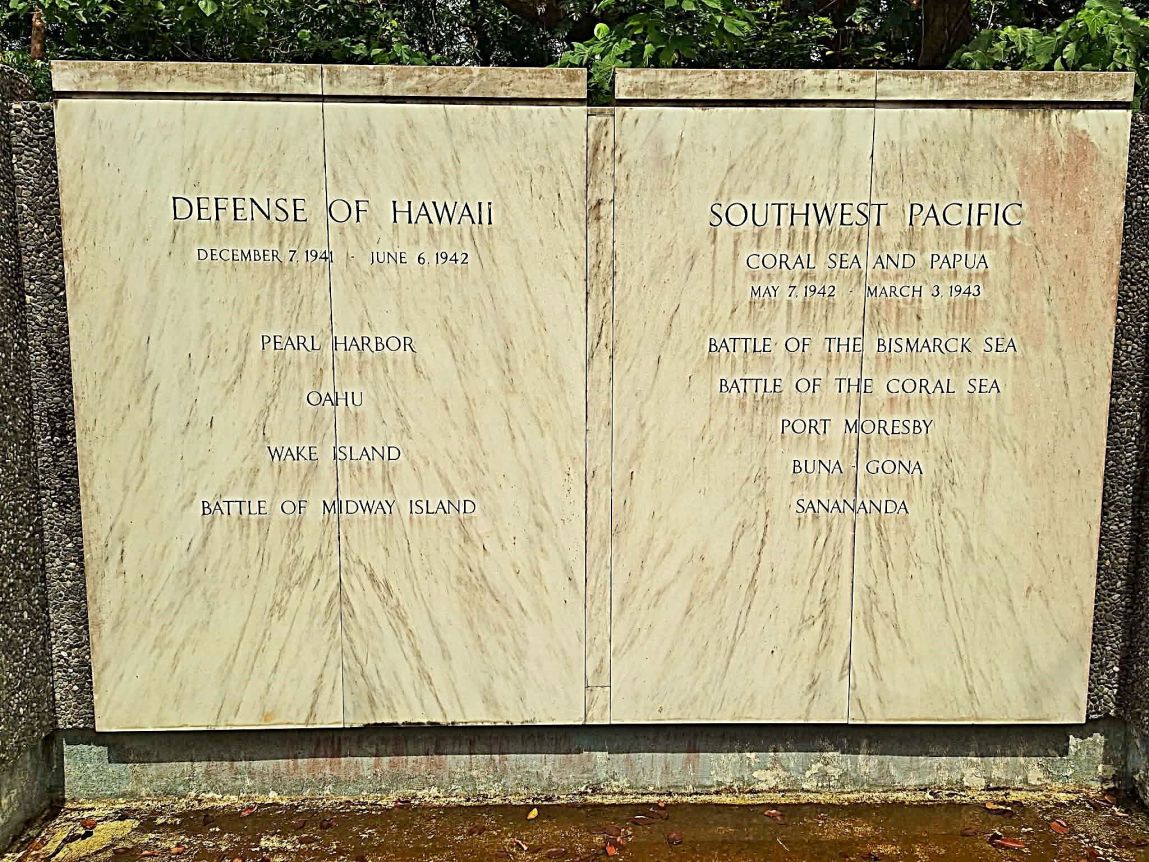 DEFENSE OF HAWAII
DECEMBER 7, 1941 - JUNE 6, 1942
PEARL HARBOR
OAHU
WAKE ISLAND
BATTLE OF MIDWAY ISLAND
SOUTHWEST PACIFIC
CORAL SEA AND PAPUA
MAY 7, 1942 - MARCH 3, 1943
BATTLE OF THE BISMARCK SEA
BATTLE OF THE CORAL SEA
PORT MORESBY
BUNA - GONA
SANANANDA